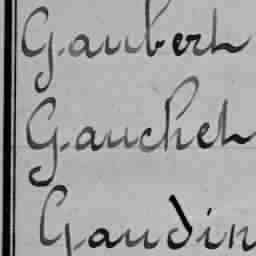 Gaubert
Gauchet
Gaudin